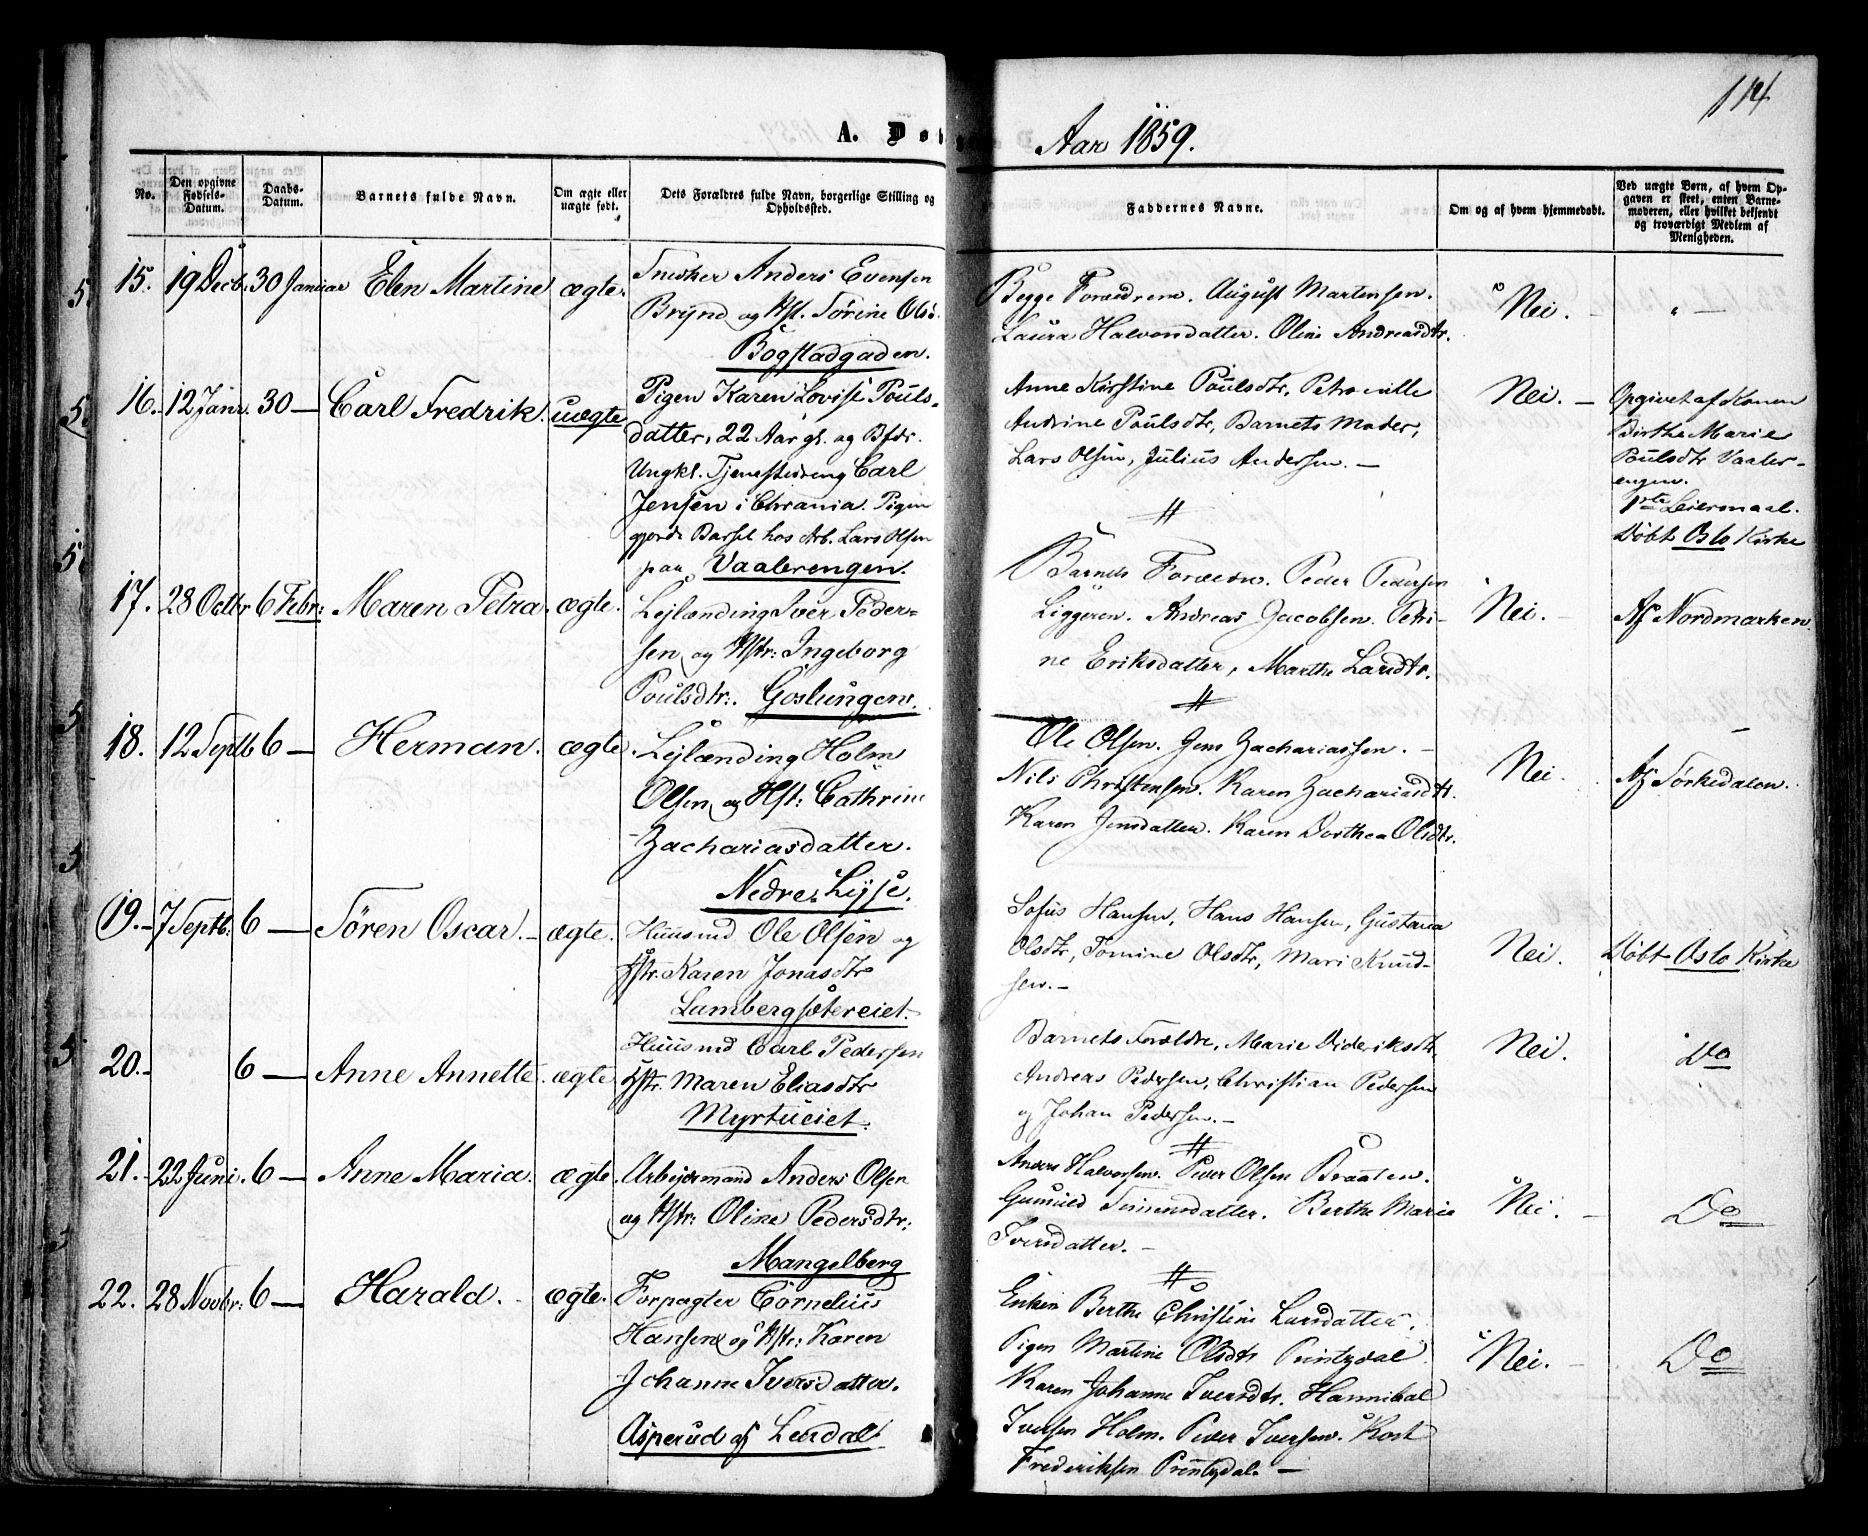 114
A. Døb
Aar 1859.
No.
Den opgivne Fødsels-Datum.
Daabs-Datum.
Barnets fulde Navn.
Om ægte eller uægte født.
Dets Forældres fulde Navn, borgerlige Stilling og Opholdssted.
Faddernes Navne.
Om og af hvem hjemmedøbt.
Ved uægte Børn, af hvem Opgaven er skeet, enten Barnemoderen, eller hvilket bekjendt og troværdigt Medlem af Menigheden.
15. 19 Decb. 30 Januar Elen Martine ægte.
Snedker Anders Evensen
Brynd og Hst. Sørine Ols.
Bogstadgaden.
Begge Forældrene. August Martensen.
Laura Halvorsdatter. Oline Andreasdtr.
Nei. - " -
16. 12 Janr. 30 - Carl Fredrik. uægte
Pigen Karen Lovise Pouls-
datter, 22 Aar gl. og Bfdr.
Ungkl. Tjenestedreng Carl
Jensen i Chrania. Pigen
gjorde Barsel hos Arb. Lars Olsen
paa Vaalerengen.
Anne Kirstine Poulsdtr, Petronille
Andrine Poulsdtr, Barnets Moder,
Lars Olsen, Julius Andersen. -
Nei. -
Opgivet af Konen
Birthe Marie
Poulsdtr Vaaler-
engen.
1ste Leiermaal.
Døbt Oslo Kirke
17. 28 Octbr 6 Febr: Maren Petra. ægte.
Lejlænding Iver Peder-
sen og Hstr: Ingeborg
Poulsdtr: Goslungen.
Barnets Forældre. Peder Pedersen
Liggeren. Andreas Jacobsen. Petri-
ne Eriksdatter, Marthe Larsdtr.
Nei. -
Af Nordmarken.
18. 12 Septb 6 - Herman. ægte.
Lejlænding Holm
Olsen og Hst: Cathrine
Zachariasdatter.
Nedre Lysse.
Ole Olsen. Jens Zachariassen. -
Nils Christensen. Karen Zachariasdtr.
Karen Jensdatter. Karen Dorthea Olsdtr.
Nei.
Af Sørkedalen.
19. - 7 Septb: 6 - Sören Oscar. - ægte.
Huusmd Ole Olsen og
Hstr. Karen Jonasdtr
Lambergsætereiet.
Sofus Hansen, Hans Hansen, Gustava
Olsdtr, Tomine Olsdtr, Mari Knud-
sen. -
Nei.
Døbt Oslo Kirke
20. - 6 - Anne Annette. ægte
Huusmd Carl Pedersen
Hstr. Maren Eliasdtr
Myrtueiet.
Barnets Forældre, Marie Dideriksdtr,
Andreas Pedersen, Christian Pedersen
og Johan Pedersen. -
Nei.
Do
21. - 22 Juni. 6 - Anne Maria. ægte.
Arbeidsmand Anders Olsen
og Hstr: Oline Pedersdtr:
Mangelberg
Anders Halvorsen. Peder Olsen Braaten.
Gunild Simensdatter. Berthe Marie
Iversdatter. -
Nei. -
Do
22. 28 Novbr: 6 - Harald. - ægte.
Forpagter Cornelius
Hansen og Hstr: Karen
Johanne Iversdatter.
Asperud af Leirdal
Enken Berthe Christine Larsdatter.
Pigen Martine Olsdtr Printzdal
Karen Johanne Iversdtr. Hannibal
Iversen Holm. Peder Iversen.
Frederiksen Printzdal. -
Nei. -
Do